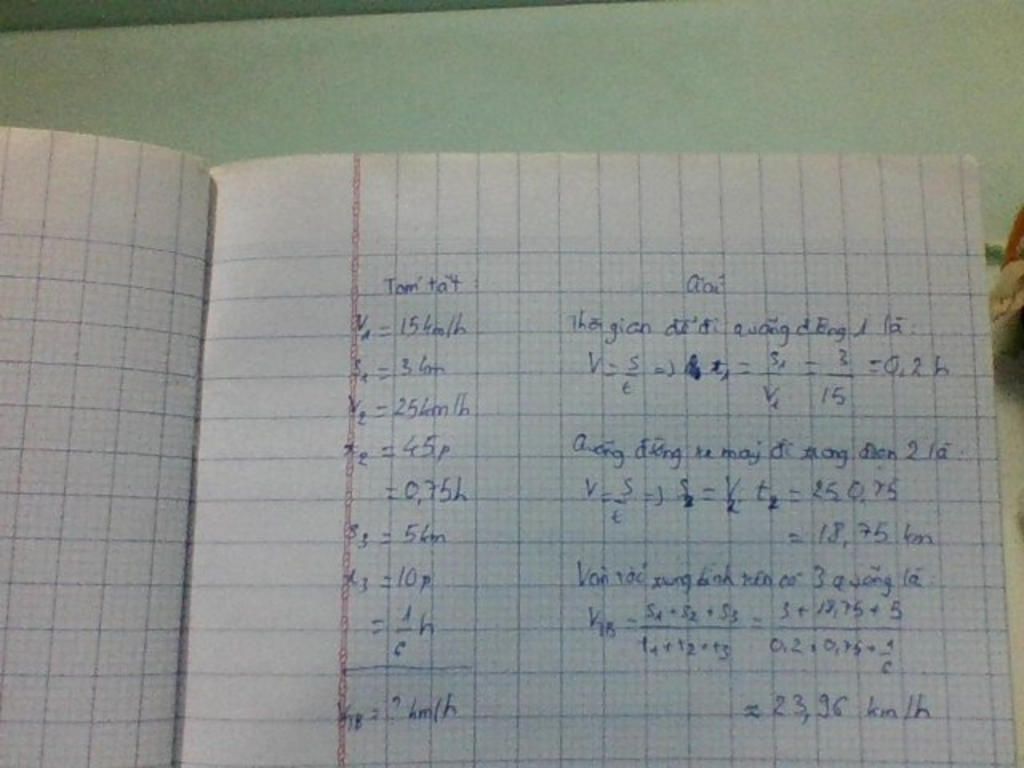 Tóm tắt
V₁ = 15km/h
S₁ = 3km
V₂ = 25km/h
t₂ = 45p
= 0,75h
S₃ = 5km
t₃ = 10p
= 1/6 h
V_TB = ? km/h
Giải
Thời gian để đi quãng đường 1 là:
V = S/t => t₁ = S₁/V₁ = 3/15 = 0,2 h
Quãng đường xe máy đi trong đoạn 2 là:
V = S/t => S₂ = V₂ t₂ = 25.0,75
= 18,75 km
Vận tốc trung bình trên cả 3 quãng là:
V_TB = S₁ + S₂ + S₃ / t₁ + t₂ + t₃ = 3 + 18,75 + 5 / 0,2 + 0,75 + 1/6
≈ 23,96 km/h